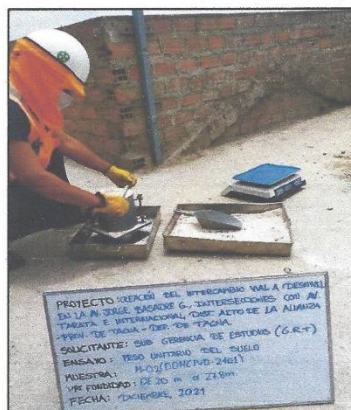 PROYECTO: CREACIÓN DEL INTERCAMBIO VIAL A DESNIVEL
EN LA AV. JORGE BASADRE G., INTERSECCIONES CON AV.
TARATA E INTERNACIONAL, DIST. ALTO DE LA ALIANZA
- PROV. DE TACNA - DEP. DE TACNA.
SOLICITANTE: SUB GERENCIA DE ESTUDIOS (G.R.T)
ENSAYO: PESO UNITARIO DEL SUELO
MUESTRA: M-02
PROFUNDIDAD: DE 20 m a 27.8m
FECHA: DICIEMBRE, 2021